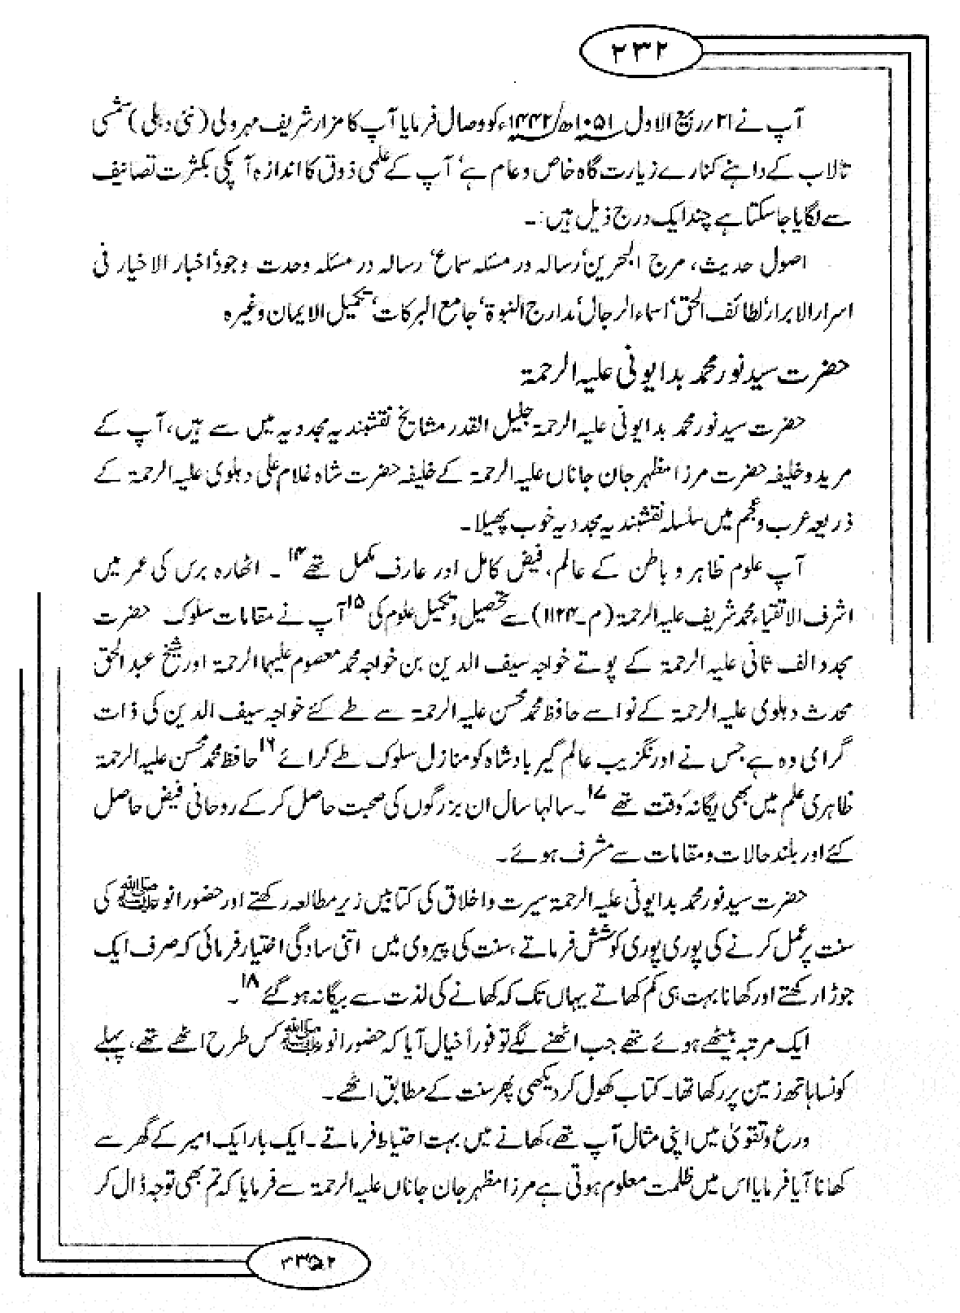 ۲۳۲
آپ نے ۲۱/ربیع الاول ۱۰۵۱ھ/۱۶۴۲ء کو وصال فرمایا آپ کا مزار شریف مہرولی (نئی دہلی) شمسی
تالاب کے داہنے کنارے زیارت گاہ خاص و عام ہے، آپ کے علمی ذوق کا اندازہ آپکی بکثرت تصانیف
سے لگایا جا سکتا ہے چند ایک درج ذیل ہیں:۔
اصول حدیث، مرج البحرین، رسالہ در مسئلہ سماع، رسالہ در مسئلہ وحدت وجود، اخبار الاخیار فی
اسرار الابرار، لطائف الحق، اسماء الرجال، مدارج النبوۃ، جامع البرکات، تکمیل الایمان وغیرہ
حضرت سید نور محمد بدایونی علیہ الرحمۃ
حضرت سید نور محمد بدایونی علیہ الرحمۃ جلیل القدر مشایخ نقشبندیہ مجددیہ میں سے ہیں، آپ کے
مرید و خلیفہ حضرت مرزا مظہر جان جاناں علیہ الرحمۃ کے خلیفہ حضرت شاہ غلام علی دہلوی علیہ الرحمۃ کے
ذریعہ عرب و عجم میں سلسلہ نقشبندیہ مجددیہ خوب پھیلا۔
آپ علوم ظاہر و باطن کے عالم، فیض کامل اور عارف مکمل تھے ۱۴۔ اٹھارہ برس کی عمر میں
اشرف الاتقیاء محمد شریف علیہ الرحمۃ (م۔۱۱۲۴) سے تحصیل و تکمیل علوم کی ۱۵ آپ نے مقامات سلوک حضرت
مجدد الف ثانی علیہ الرحمۃ کے پوتے خواجہ سیف الدین بن خواجہ محمد معصوم علیہا الرحمۃ اور شیخ عبدالحق
محدث دہلوی علیہ الرحمۃ کے نواسے حافظ محمد محسن علیہ الرحمۃ سے طے کئے خواجہ سیف الدین کی ذات
گرامی وہ ہے جس نے اورنگزیب عالم گیر بادشاہ کو منازل سلوک طے کرائے ۱۶ حافظ محمد محسن علیہ الرحمۃ
ظاہری علم میں بھی یگانہ وقت تھے ۱۷۔ سالہا سال ان بزرگوں کی صحبت حاصل کر کے روحانی فیض حاصل
کئے اور بلند حالات و مقامات سے مشرف ہوئے۔
حضرت سید نور محمد بدایونی علیہ الرحمۃ سیرت و اخلاق کی کتابیں زیر مطالعہ رکھتے اور حضور انور ﷺ کی
سنت پر عمل کرنے کی پوری پوری کوشش فرماتے، سنت کی پیروی میں اتنی سادگی اختیار فرمائی کہ صرف ایک
جوڑا رکھتے اور کھانا بہت ہی کم کھاتے یہاں تک کہ کھانے کی لذت سے بیگانہ ہو گئے ۱۸۔
ایک مرتبہ بیٹھے ہوئے تھے جب اٹھنے لگے تو فوراً خیال آیا کہ حضور انور ﷺ کس طرح اٹھے تھے، پہلے
کونسا ہاتھ زمین پر رکھا تھا۔ کتاب کھول کر دیکھی پھر سنت کے مطابق اٹھے۔
ورع و تقویٰ میں اپنی مثال آپ تھے، کھانے میں بہت احتیاط فرماتے۔ ایک بار ایک امیر کے گھر سے
کھانا آیا فرمایا اس میں ظلمت معلوم ہوتی ہے مرزا مظہر جان جاناں علیہ الرحمۃ سے فرمایا کہ تم بھی توجہ ڈال کر